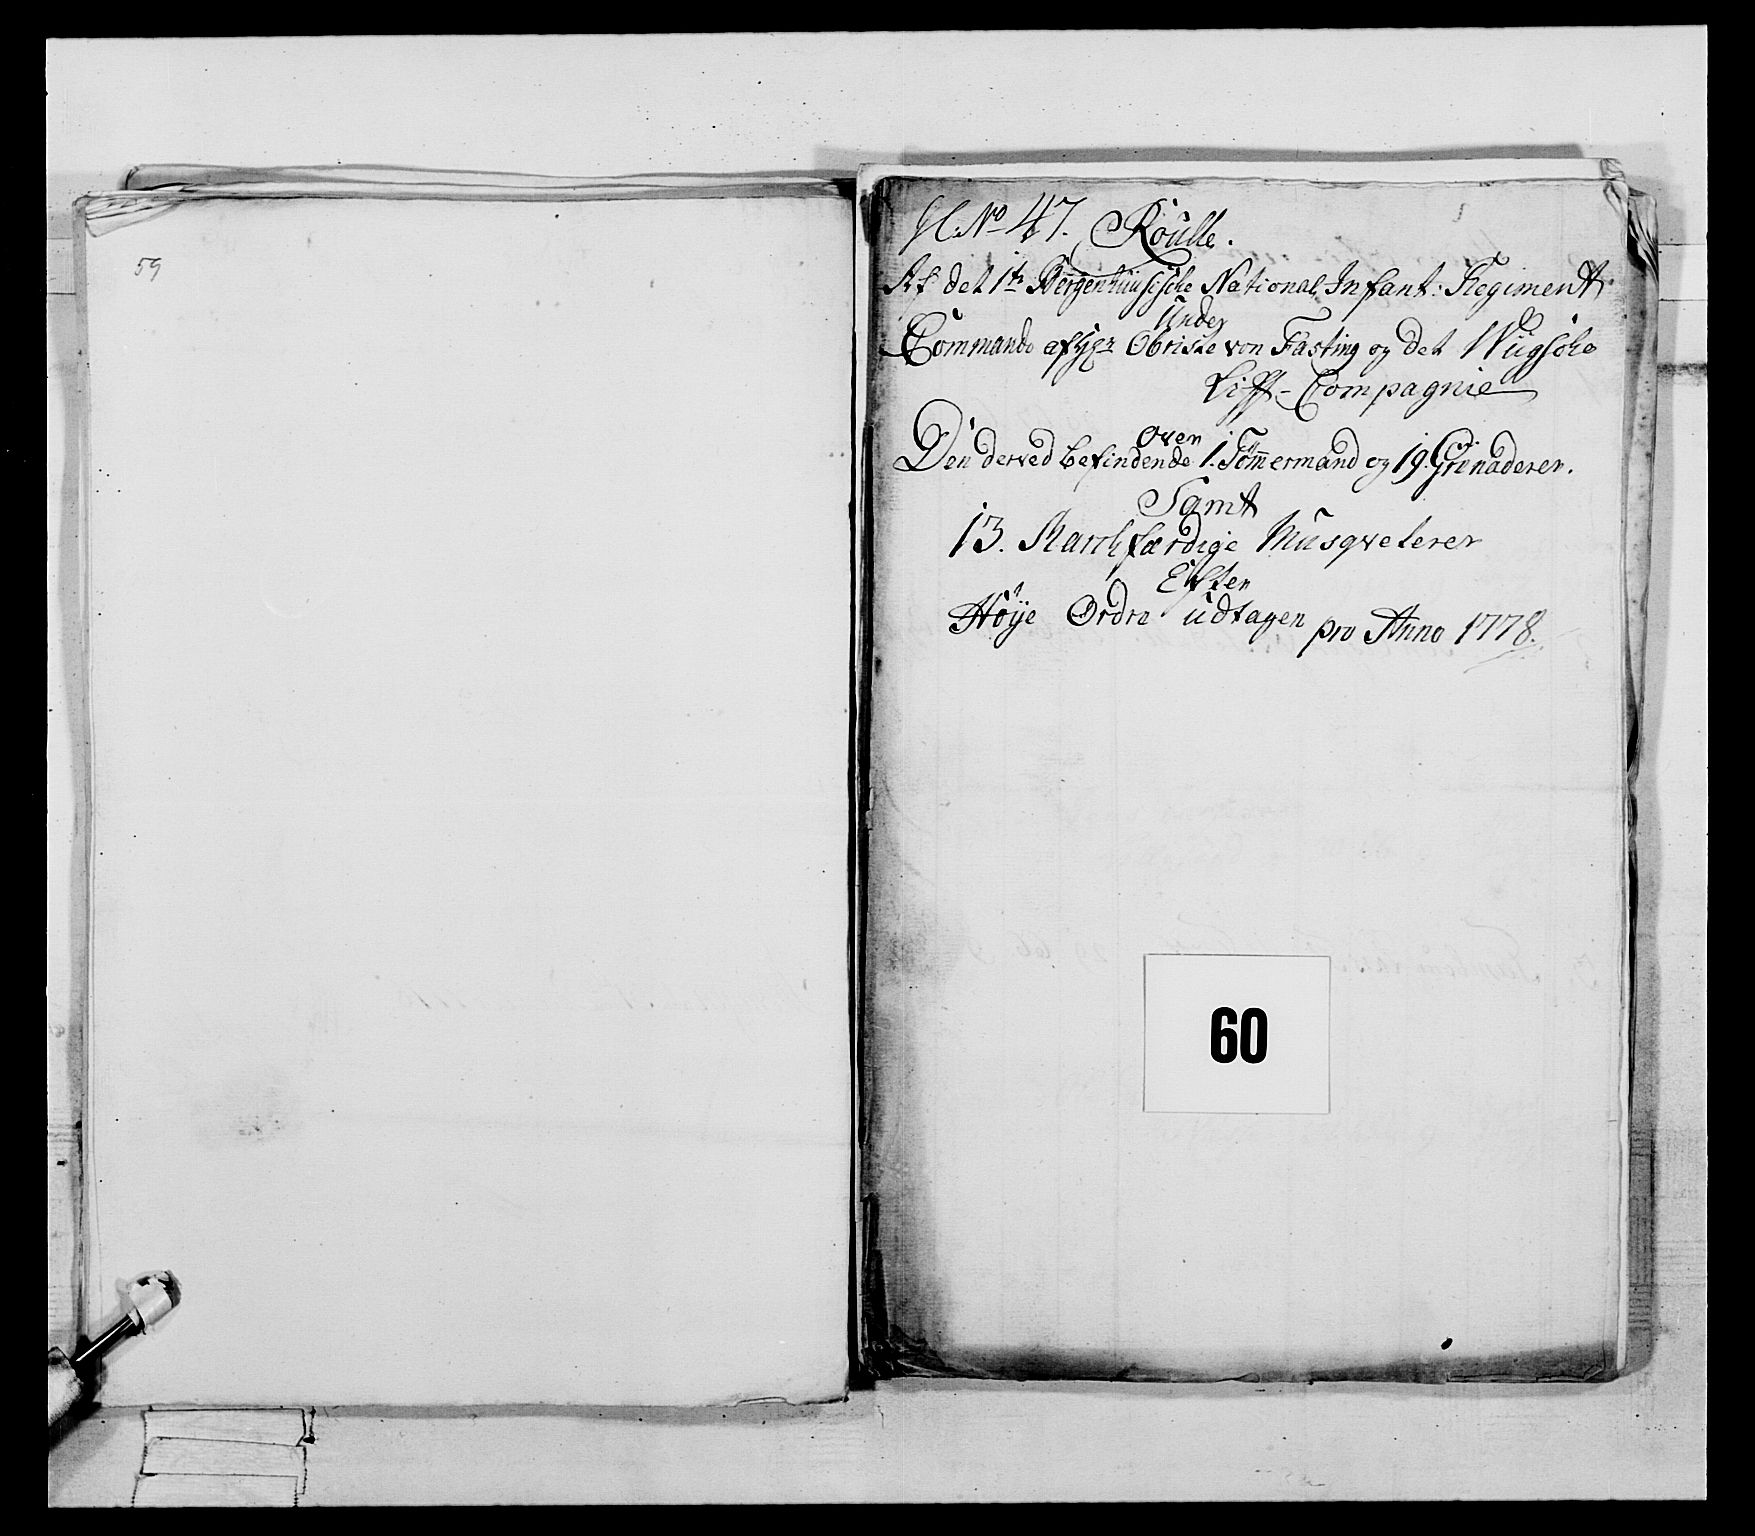 59
No 47. Roulle.
Af det 1te Bergenhuusiske National Infant: Regiment
Under
Commando af Hr Obriste von Fasting og det Wugsche
Liff-Compagnie
Over
Den derved befindende 1. Tömmermand og 19. Grenaderer.
Samt
13. Marchfærdige Musqveterer
Efter
Höÿe Ordre udtagen pro Anno 1778.
60